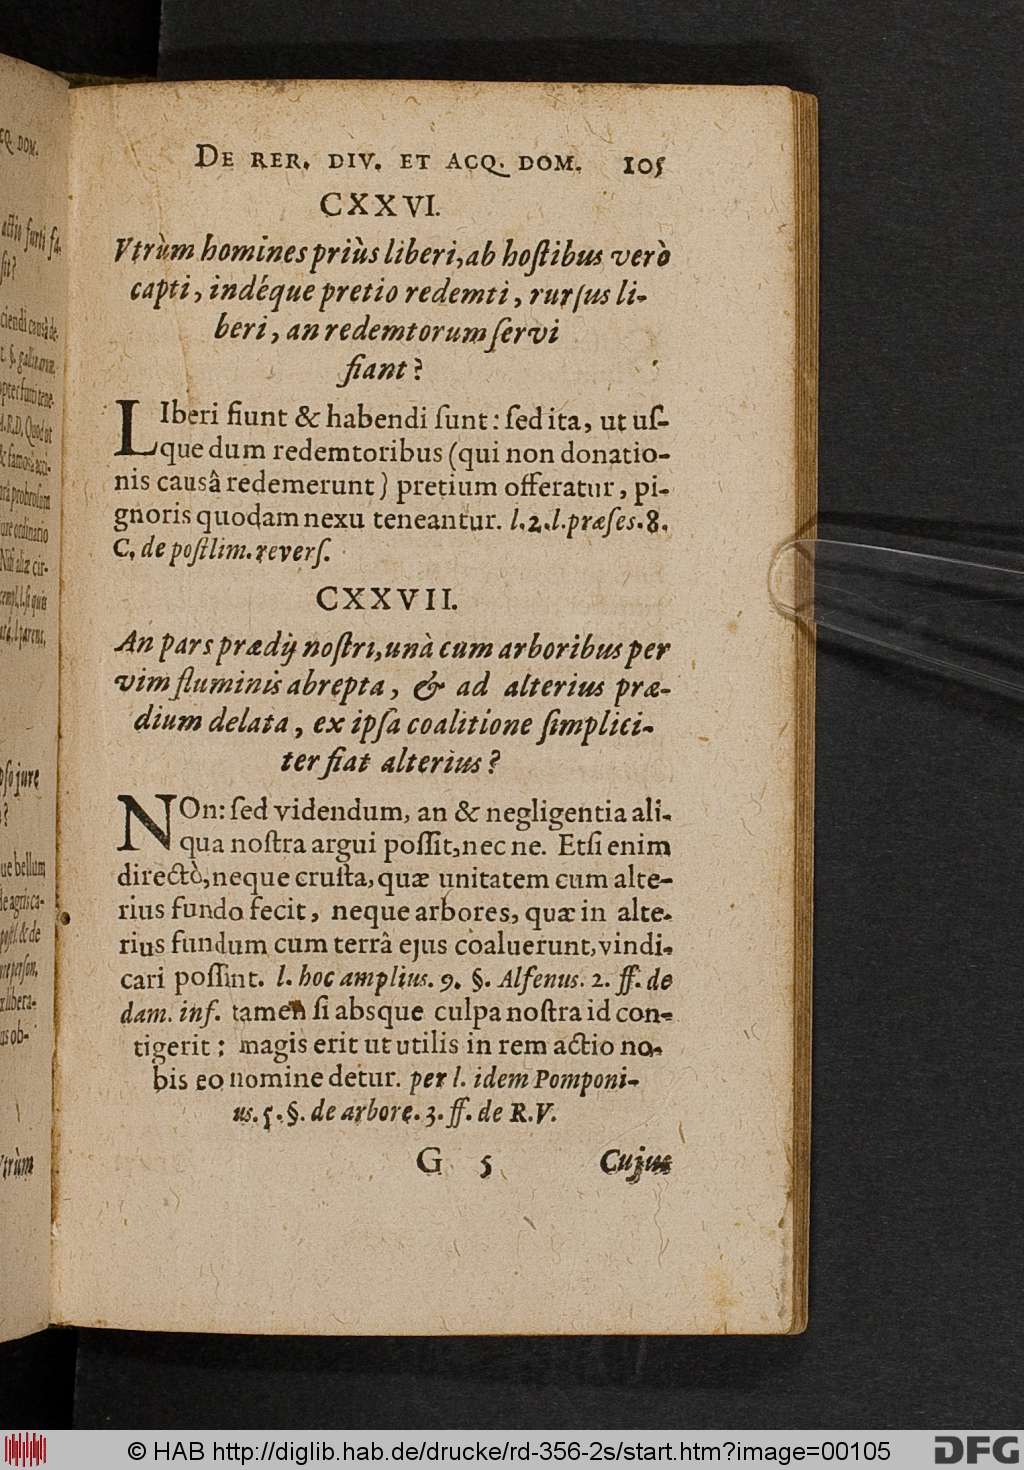 DE RER. DIV. ET ACQ. DOM. 105
CXXVI.
Vtrùm homines priùs liberi, ab hoſtibus verò
capti, indéque pretio redemti, rurſus li-
beri, an redemtorum ſervi
fiant?
LIberi fiunt & habendi ſunt: ſed ita, ut uſ-
que dum redemtoribus (qui non donatio-
nis causâ redemerunt) pretium offeratur, pi-
gnoris quodam nexu teneantur. l.2.l.præſes.8.
C. de poſtlim. reverſ.
CXXVII.
An pars prædij noſtri, unà cum arboribus per
vim fluminis abrepta, & ad alterius præ-
dium delata, ex ipſa coalitione ſimplici-
ter fiat alterius?
NOn: ſed videndum, an & negligentia ali-
qua noſtra argui poſſit, nec ne. Etſi enim
directò, neque cruſta, quæ unitatem cum alte-
rius fundo fecit, neque arbores, quæ in alte-
rius fundum cum terrâ ejus coaluerunt, vindi-
cari poſſint. l. hoc amplius. 9. §. Alfenus. 2. ff. de
dam. inf. tamen ſi absque culpa noſtra id con-
tigerit; magis erit ut utilis in rem actio no-
bis eo nomine detur. per l. idem Pomponi-
us. 5. §. de arbore. 3. ff. de R.V.
G 5 Cujus
© HAB http://diglib.hab.de/drucke/rd-356-2s/start.htm?image=00105
DFG